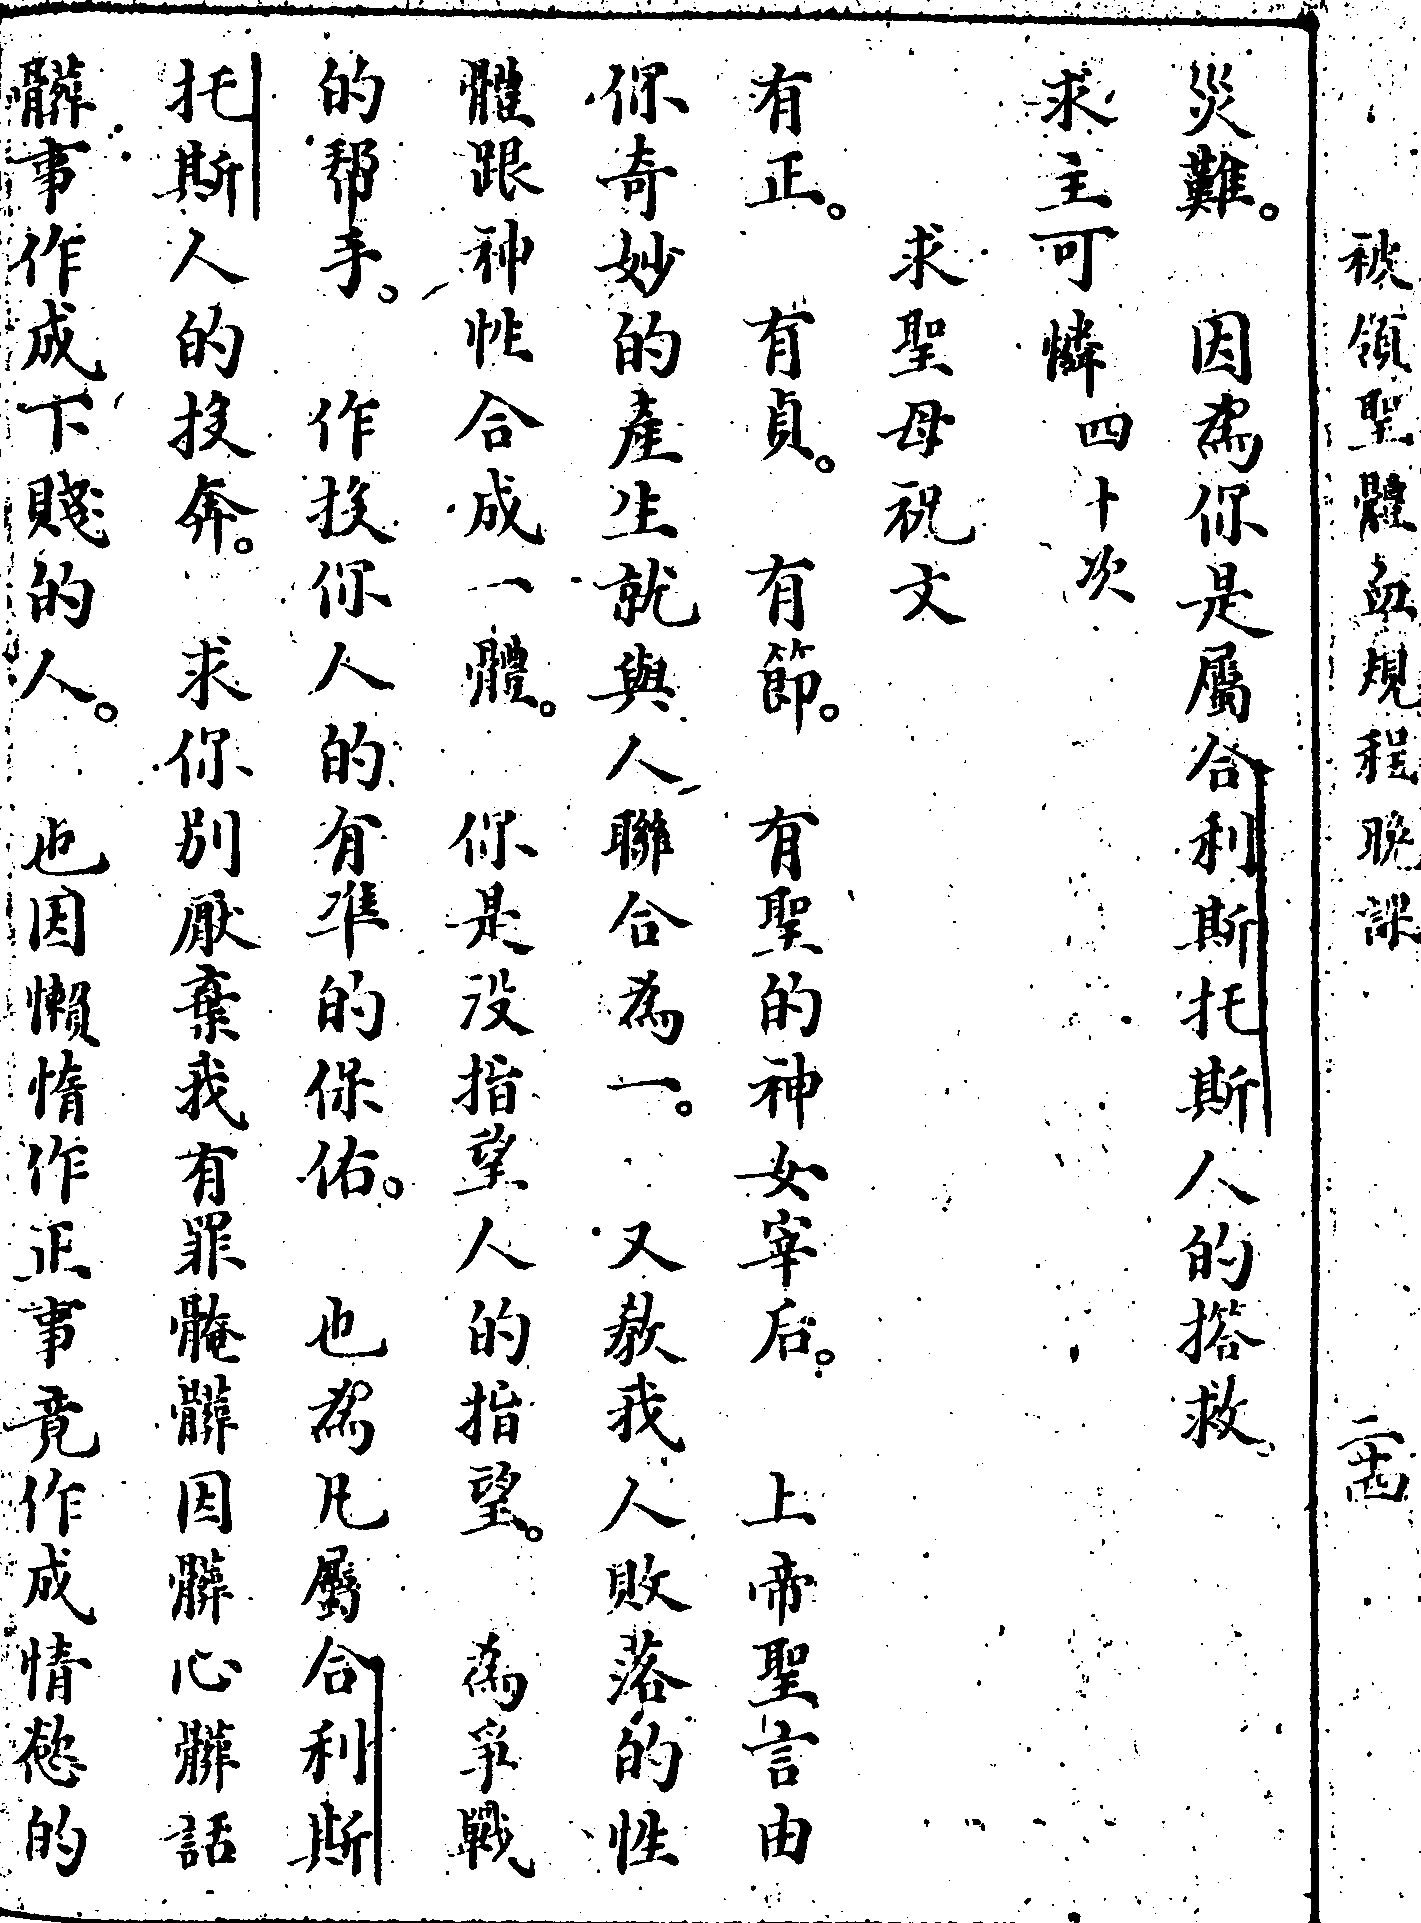 被領聖體血規程晚課 二十四
災難。 因為你是屬合利斯托斯人的搭救。
求主可憐四十次
求聖母祝文
有正。 有貞。 有節。 有聖的神女宰后。 上帝聖言由
你奇妙的產生就與人聯合為一。 又教我人敗落的性
體跟神性合成一體。 你是没指望人的指望。 為爭戰
的幇手。 作投你人的有準的保佑。 也為凡屬合利斯
托斯人的投奔。 求你別厭棄我有罪腌髒因髒心髒話
髒事作成下賤的人。 也因懶惰作正事竟作成情慾的